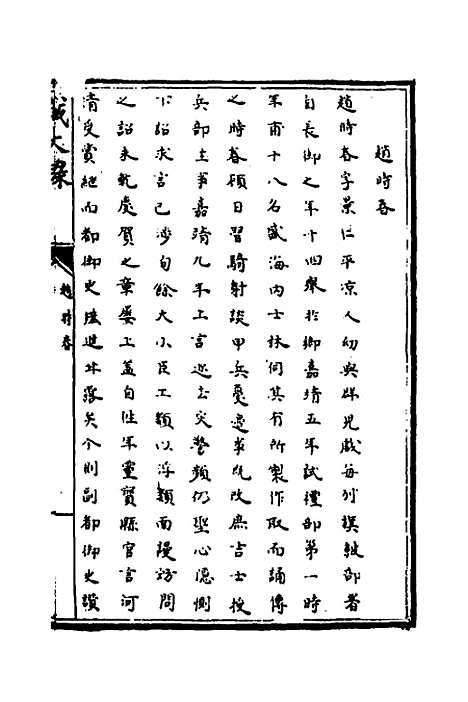 趙時春
趙時春字景仁平凉人幼與群兒戲每列旗鼓部署
自長御之年十四舉於鄉嘉靖五年試禮部第一時
年甫十八名盛海内士林伺其有所製作取而誦傳
之時春顧日習騎射談甲兵憂邊事旣改庶吉士授
兵部主事嘉靖九年上言邇者灾眚頻仍聖心惻
下詔求言已涉旬餘大小臣工類以浮類面謾訪問
之詔未乾慶賀之章屢上蓋自往年靈寶縣官言河
清受賞繼而都御史汪進甘露矣今則副都御史讚
趙時春